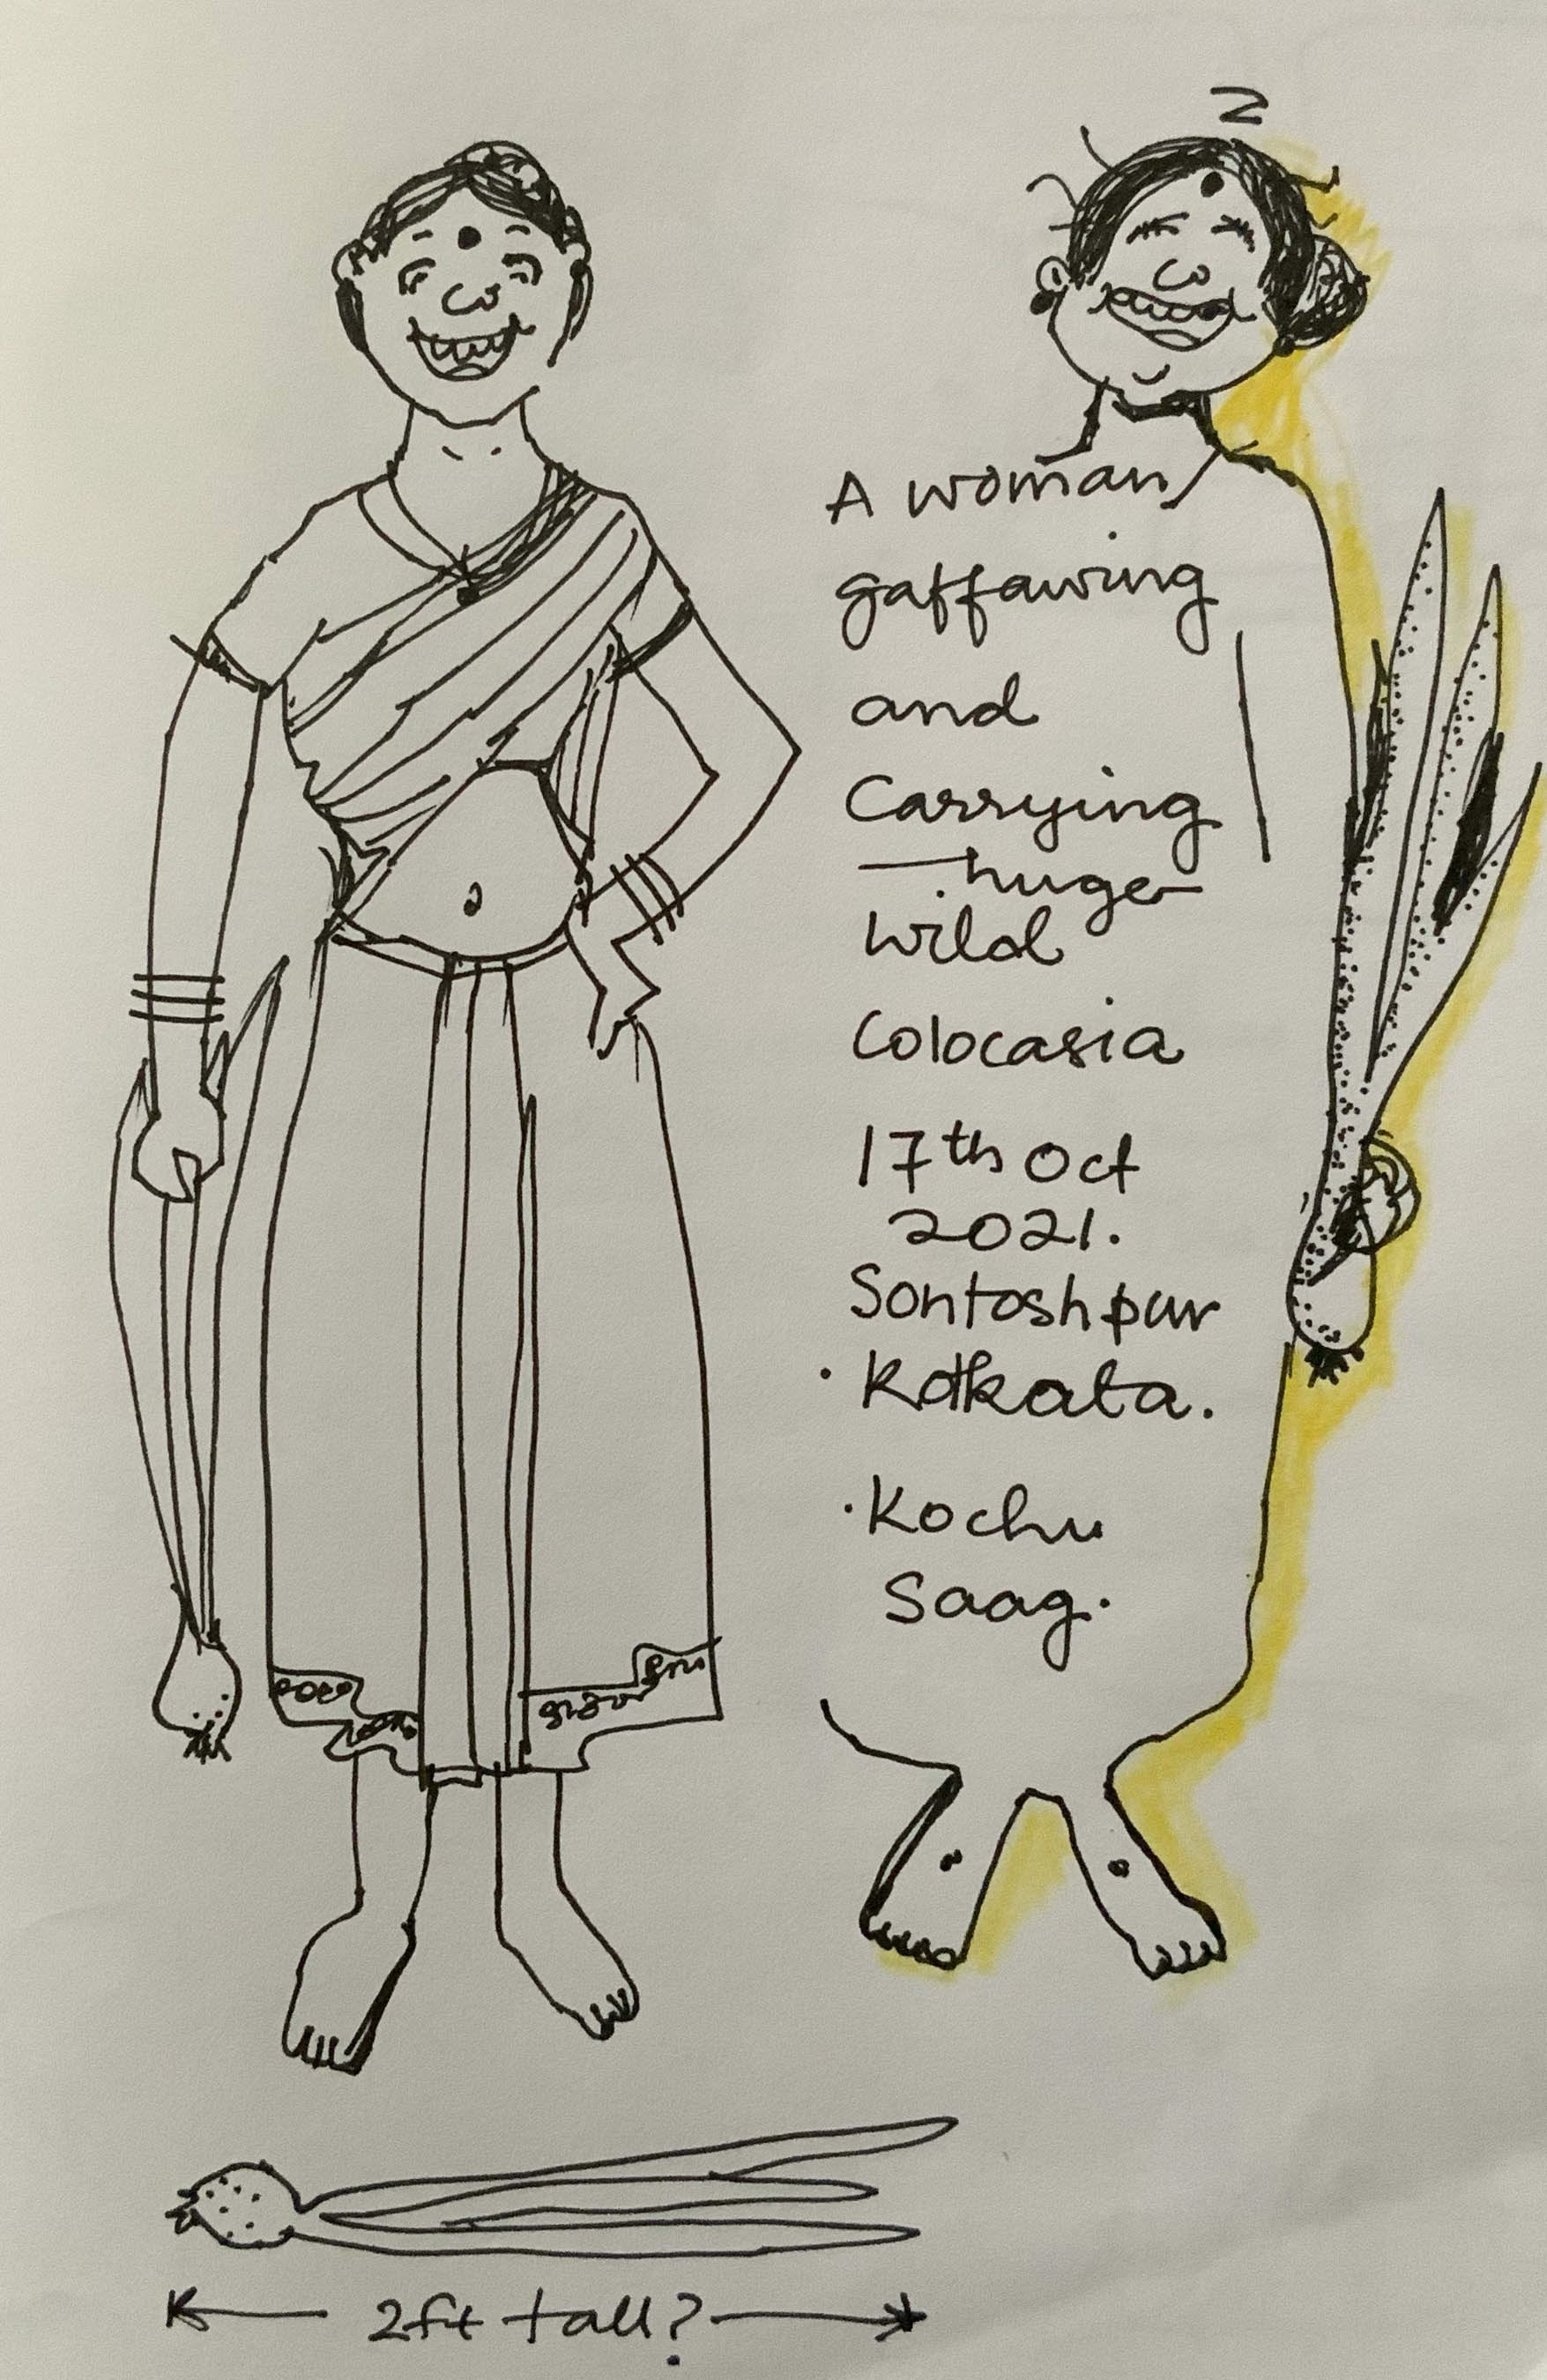 2
A woman
gaffawing
and
Carrying
huge
Wild
Colocasia
17th Oct
2021.
Sontoshpur
• Kolkata.
• Kochu
Saag.
2ft tall?